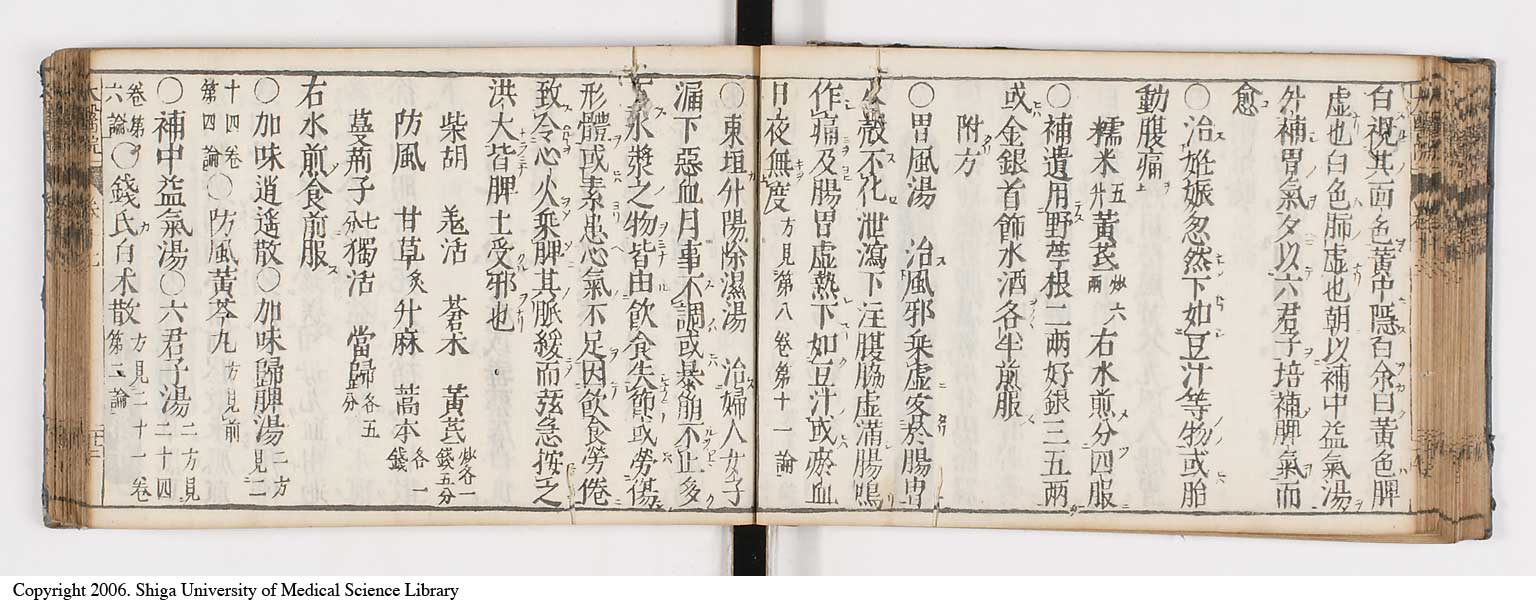 白視其面色黄中隱白余曰黄色脾
虚也白色肺虚也朝以補中益氣湯
外補胃氣夕以六君子培補脾氣而
愈
○治姙娠忽然下如豆汁等物或胎
動腹痛
糯米五升黄芪炒六兩右水煎分四服
○補遺用野苧根二兩好銀三五兩
或金銀首飾水酒各半煎服
附方
○胃風湯 治風邪乗虚客於腸胃
水穀不化泄瀉下注腹脇虚滿腸鳴
作痛及腸胃虚熱下如豆汁或瘀血
日夜無度方見第八卷第十一論
○東垣升陽除濕湯 治婦人女子
漏下惡血月事不調或暴崩不止多
下水漿之物皆由飲食失節或勞傷
形體或素患心氣不足因飲食勞倦
致令心火乗脾其脈緩而弦急按之
洪大皆脾土受邪也
柴胡 羗活 蒼朮 黄芪炒各一錢五分
防風 甘草炙 升麻 藁本各一錢
蔓荊子七分獨活 當歸各五分
右水煎食前服
○加味逍遙散○加味歸脾湯二方見二
十四卷第四論○防風黄芩丸方見前
○補中益氣湯○六君子湯二方見二十四
卷第六論○錢氏白朮散方見二十一卷第二論